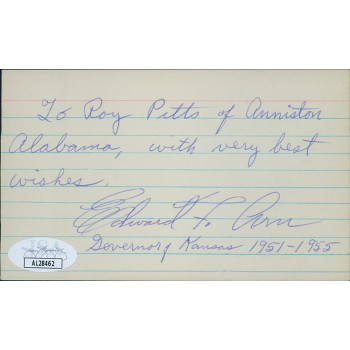 To Roy Pitts of Anniston
Alabama, with very best
wishes.
Edward F. Arn
Governor of Kansas 1951-1955
JSA
AL28462